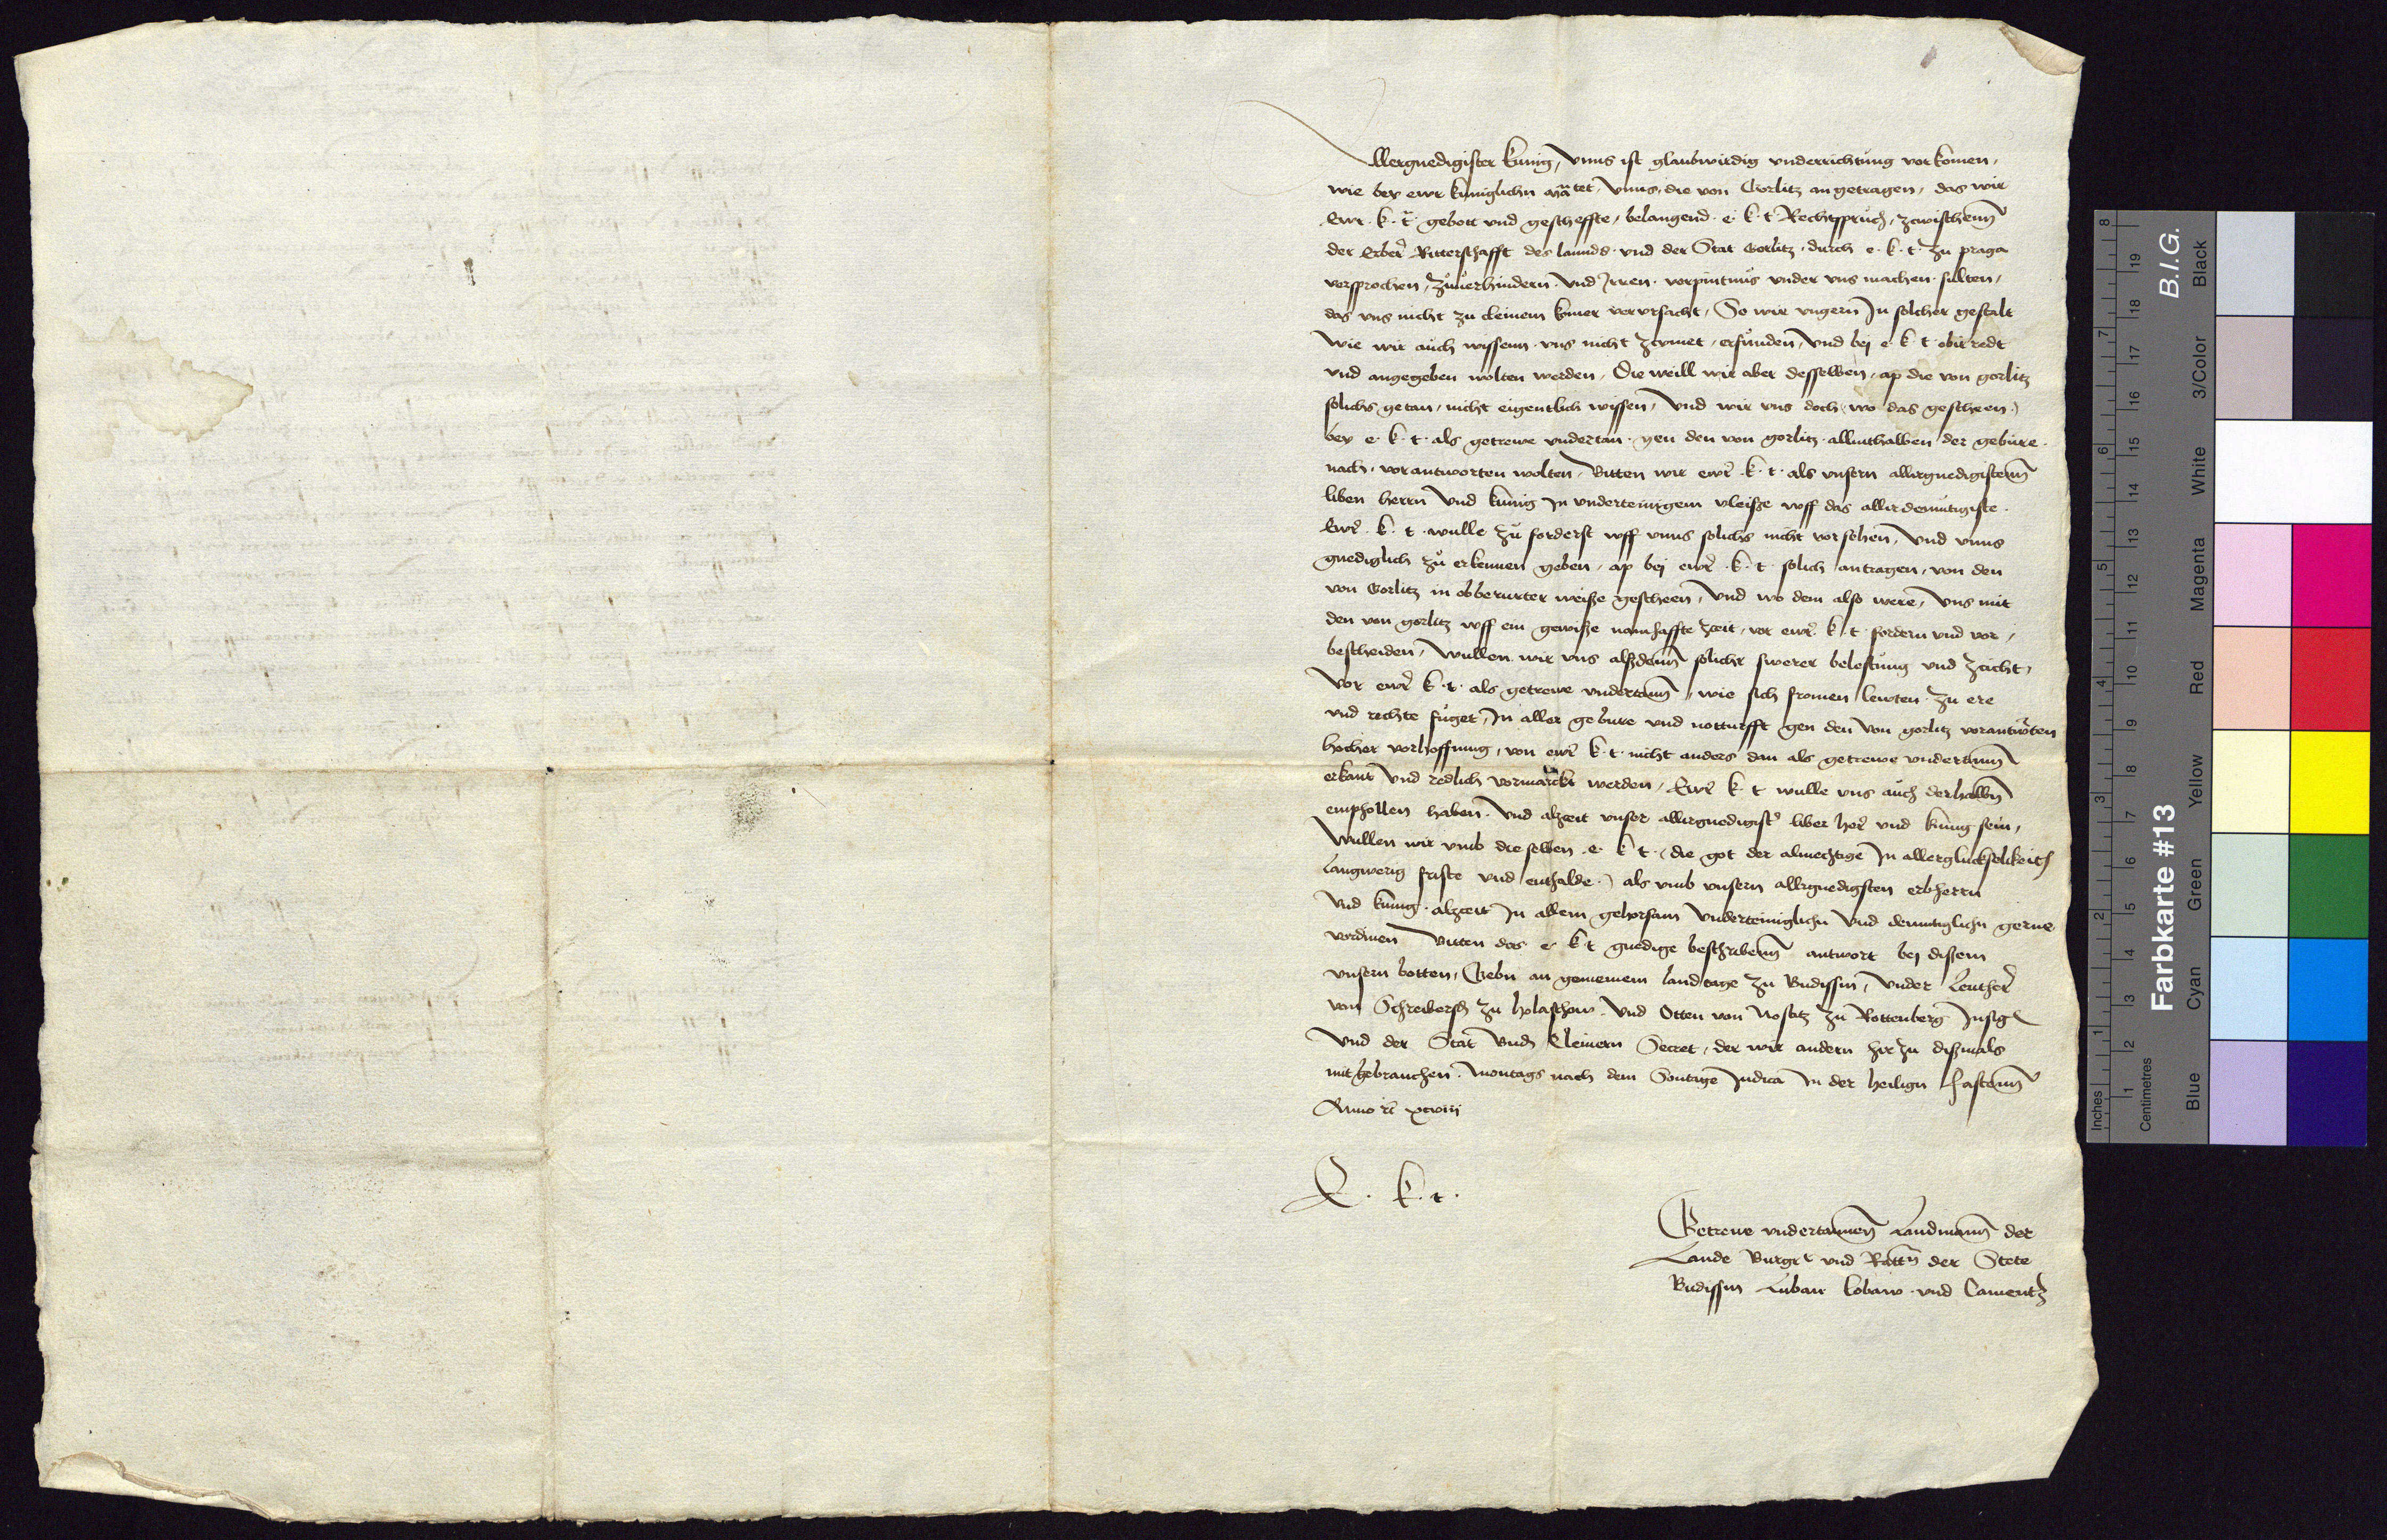 Allergnedigister kunig, vnns ist glaubwirdig vnderrichtung vorkomen,
wie bey ewr kuniglichn matet, vnns, die von Gorlitz angetragen, das wir
Ewr. k. t. gebott vnd gescheffte, belangend e. k. t Rechtspruch, zwischenn
der Erber Ritterschafft des lannds vnd der Stat Gorlitz, durch e. k. t. zu praga
versprochen, zuuerhindern vnd Irren, vorpintnus vnder vns machen sulten,
das vns nicht zu cleinem komer verursacht, So wir vngern In solcher gestalt
wie wir auch wissenn vns nicht zcymet, erfunden, vnd bej e k t obirredt
vnd angegeben wolten werden, Die weill wir aber desselben, ap die von gorlitz
solichs getan, nicht eigentlich wissen, vnd wir vns doch (wo das gescheen)
bey e. k. t. als getrewe vndertan gen den von gorlitz allinthalben der gebure
nach, vorantworten wolten, Bitten wir ewr k. t. als vnsern allirgnedigistenn
liben herrn vnd kunig In vnderteinigem vleisze vff das allirdemutigiste
Ewr. k. t. wulle zu forderst vff vnns solichs nicht vorsehen, vnd vnns
gnediglich zu erkennen geben, ap bej ewr. k. t. solich antragen, von den
von Gorlitz in obberurter weisze gescheen, vnd wo dem also were, vns mit
den von gorlitz vff ein gewisze namhaffte zceit, vor ewr. k. t. fordern vnd vor,
bescheiden, wullen wir vns alszdenn solichr swerer belestung vnd zcicht,
vor ewr k. t. als getrewe vndertann, wie sich fromen lewten zu ere
vnd rechte fuget, In aller gebure vnd notturfft gen den von gorlitz vorantwrten
hocher vorhoffnung, von ewr k. t. nicht anders dan als getrewe vndertann
erkant vnd redlich vormarckt werden, Ewr k t wulle vns auch derhalbn
empholen haben, vnd alzceit vnser allirgnedigist liber her vnd kunig sein,
Wullen wir vmb die selben e k t (die got der almechtige In allerglucksolikeit
langwerig friste vnd enthalde) als vmb vnsern allirgnedigsten erbherrn
vnd kunig alzceit In allem gehorsam vnderteiniglichn vnd demutiglichn gerne
vordinen Bitten des e k t gnedige beschribenn antwort bej diszem
vnsern botten, Gebn an gemeinem landtage zu Budissin, vnder Leuther
von Schreibersd zu holaschow vnd Otten von Nostitz zu Rottenberg Insigl
vnd der Stat Bud Cleinern Secret, der wir andern hir zu diszmals
mit gebrauchen, Montags nach dem Sontage Judica In der heilign Fastenn
Anno rc xcviij
E. k. t.
Getrewe vndertannen Landmann der
Lande Burgr vnd Rattn der Stete
Budissin Luban Lobaw vnd Camentz